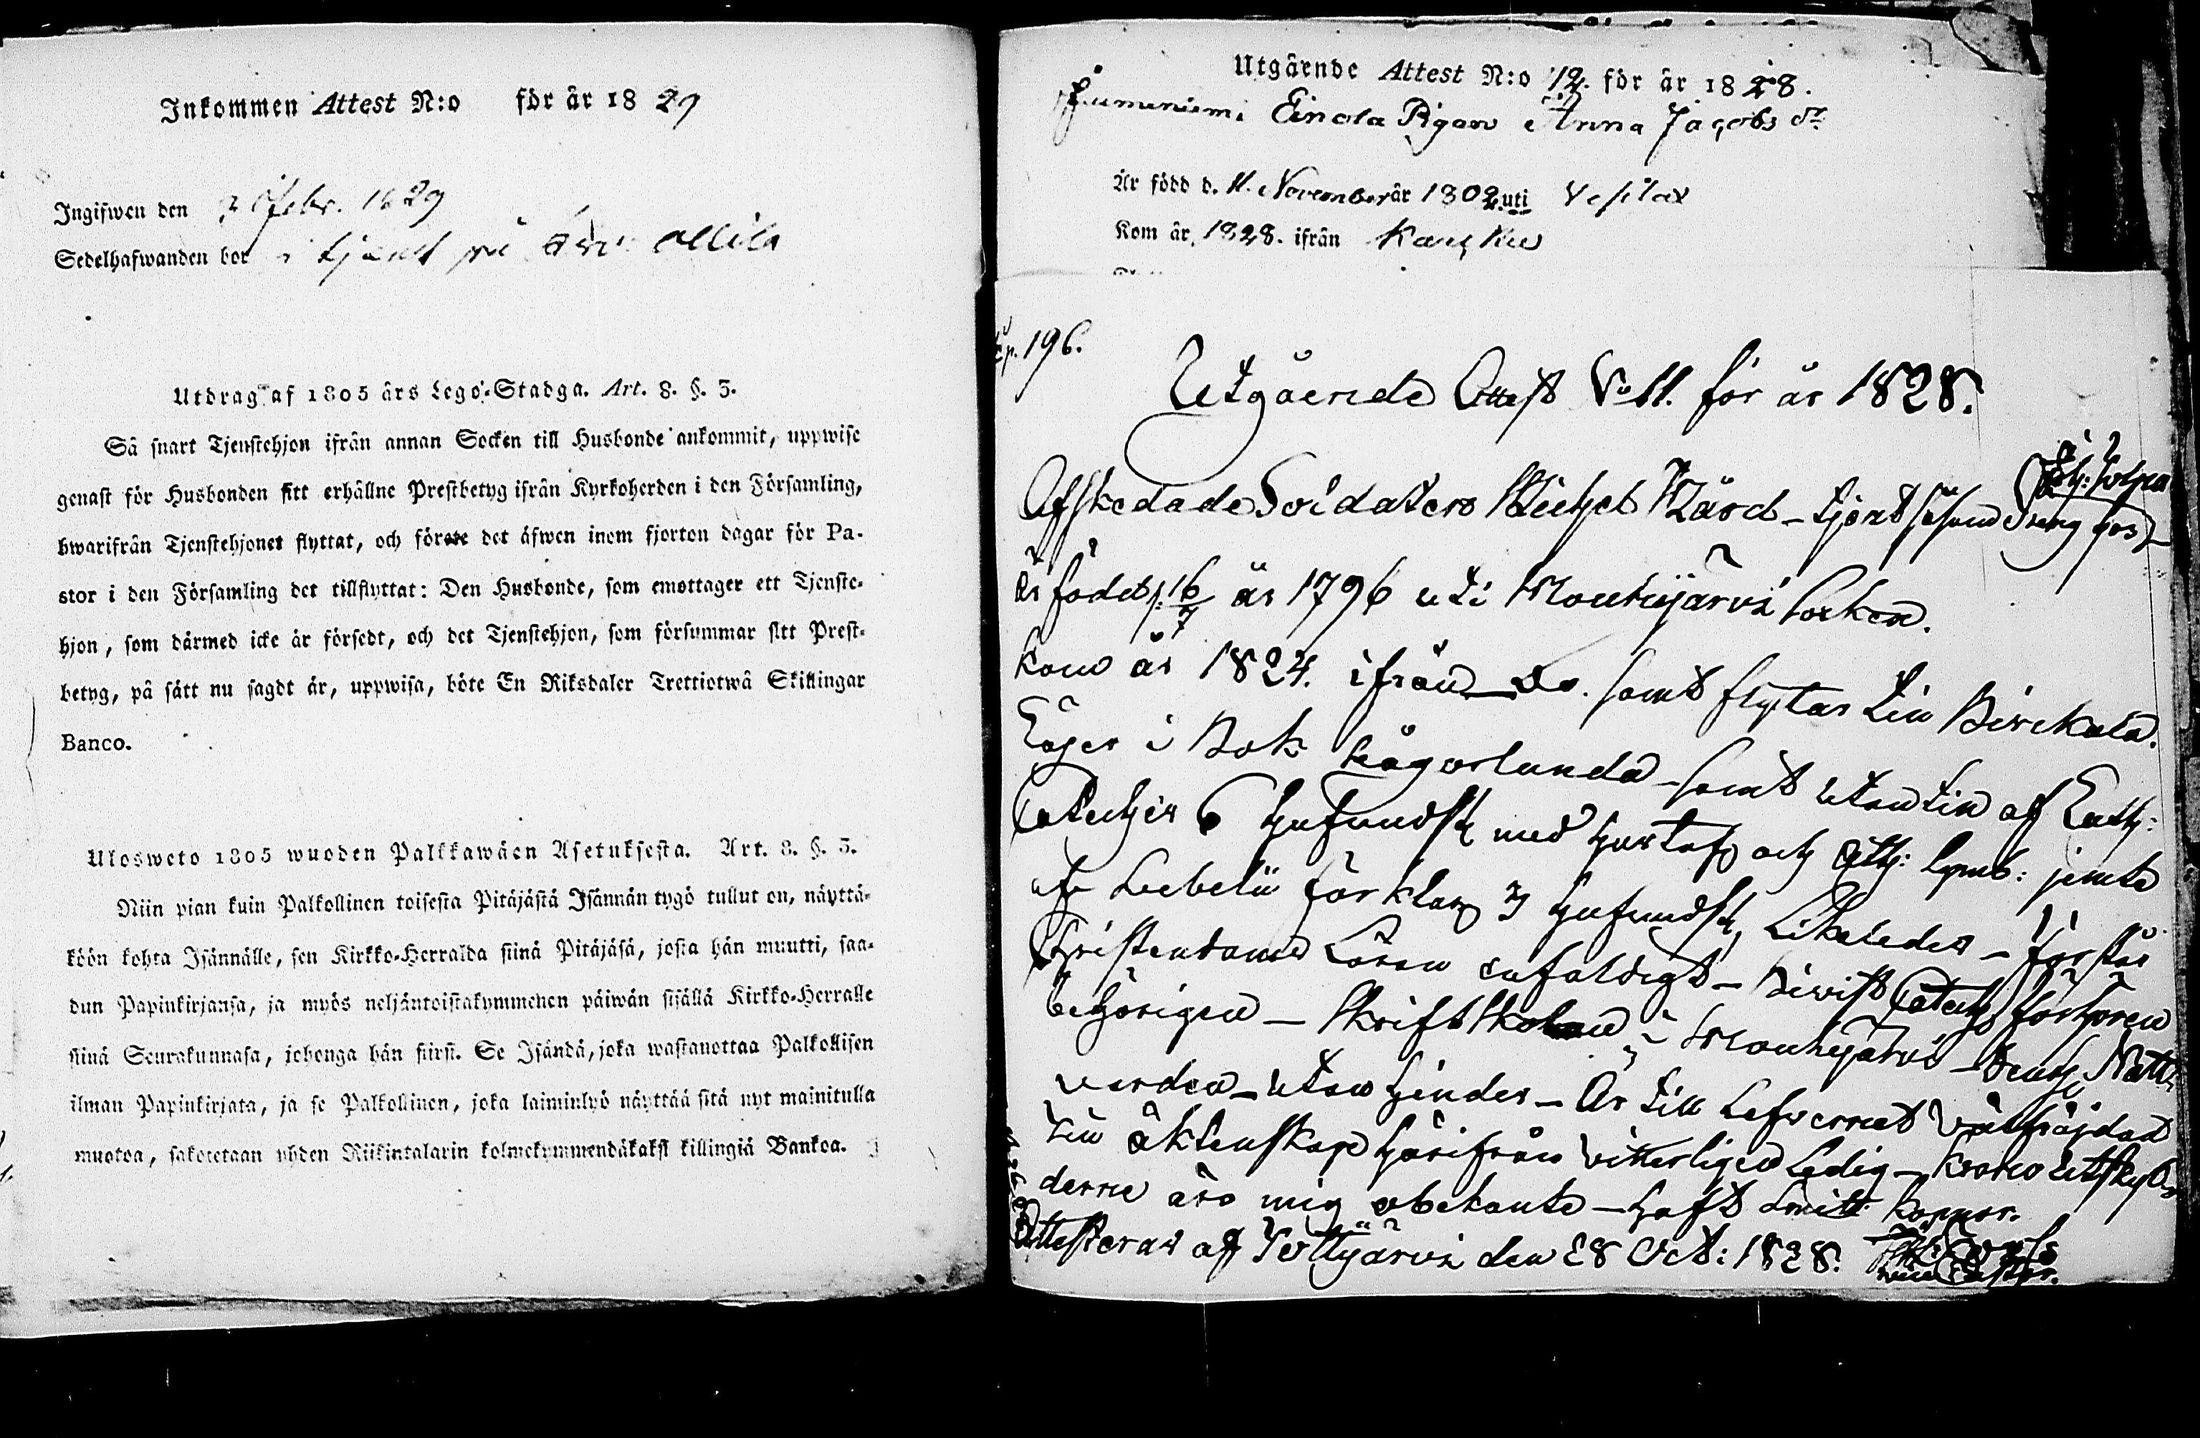 Inkommen Attest N:o för år 18 29
Ingifwen den Febr. 1829
Sedelhafwanden bor i tjenst på Allila
Utdrag af 1805 års Lego-Stadga. Art. 8. §. 3.
Så snart Tjenstehjon ifrån annan Socken till Husbonde ankommit, uppwise
genast för Husbonden sitt erhållne Prestbetyg ifrån Kyrkoherden i den Församling,
hwarifrån Tjenstehjonet flyttat, och förete det äfwen inom fjorton dagar för Pa-
stor i den Församling det tillflyttat: Den Husbonde, som emottager ett Tjenste-
hjon, som därmed icke är försedt, och det Tjenstehjon, som försummar sitt Prest-
betyg, på sätt nu sagdt är, uppwisa, böte En Riksdaler Trettiotwå Skillingar
Banco.
Ulosweto 1805 wuoden Palkkawäen Asetuksesta. Art. 8. §. 3.
Niin pian kuin Palkollinen toisesta Pitäjästä Isännän tygö tullut on, näyttä-
köön kohta Isännälle, sen Kirkko-Herralda siinä Pitäjäsä, josta hän muutti, saa-
dun Papinkirjansa, ja myös neljäntoistakymmenen päiwän sisällä Kirkko-Herralle
siinä Seurakunnasa, johonga hän siirsi. Se Isändä, joka wastanottaa Palkollisen
ilman Papinkirjata, ja se Palkollinen, joka laiminlyö näyttää sitä nyt mainitulla
muotoa, sakotetaan yhden Riikintalarin kolmekymmendäkaksi killingiä Bankoa.
Utgående Attest N:o 12. för år 1828.
Einola Pigan Anna Jacobs dr
Är född d. 11. November år 1802 uti Vesilax
Kom år 1828. ifrån Karkku
p. 196.
Utgående Attest No 11. för år 1828.
Afskedade Soldaten Michel Hård - tjent såsom Dreng hos
är född d: 16/7 år 1796 uti Mouhijärvi Socken.
kom år 1824. ifrån do. samt flyttar till Birckala.
Läser i Bok någorlunda - samt utantill af Luth:
Catechis 6 hufvudst med hustaf och Ath: Symb: jemte
af Svebelii förklar 3 hufvudst, Likaledes - förstår
Christendoms Läran enfaldigt - Bivist Catech förhören
behörigen - Skriftskolan i Mouhijärvi - Begg Natt-
varden - utan hinder - Är till Lefvernet Välfräjdad
till äktenskap härifrån vitterligen Ledig - Krono utskyl-
derne äro mig obekante - haft Koppor.
Attesteras af Tottijärvi den 28 Oct: 1828.